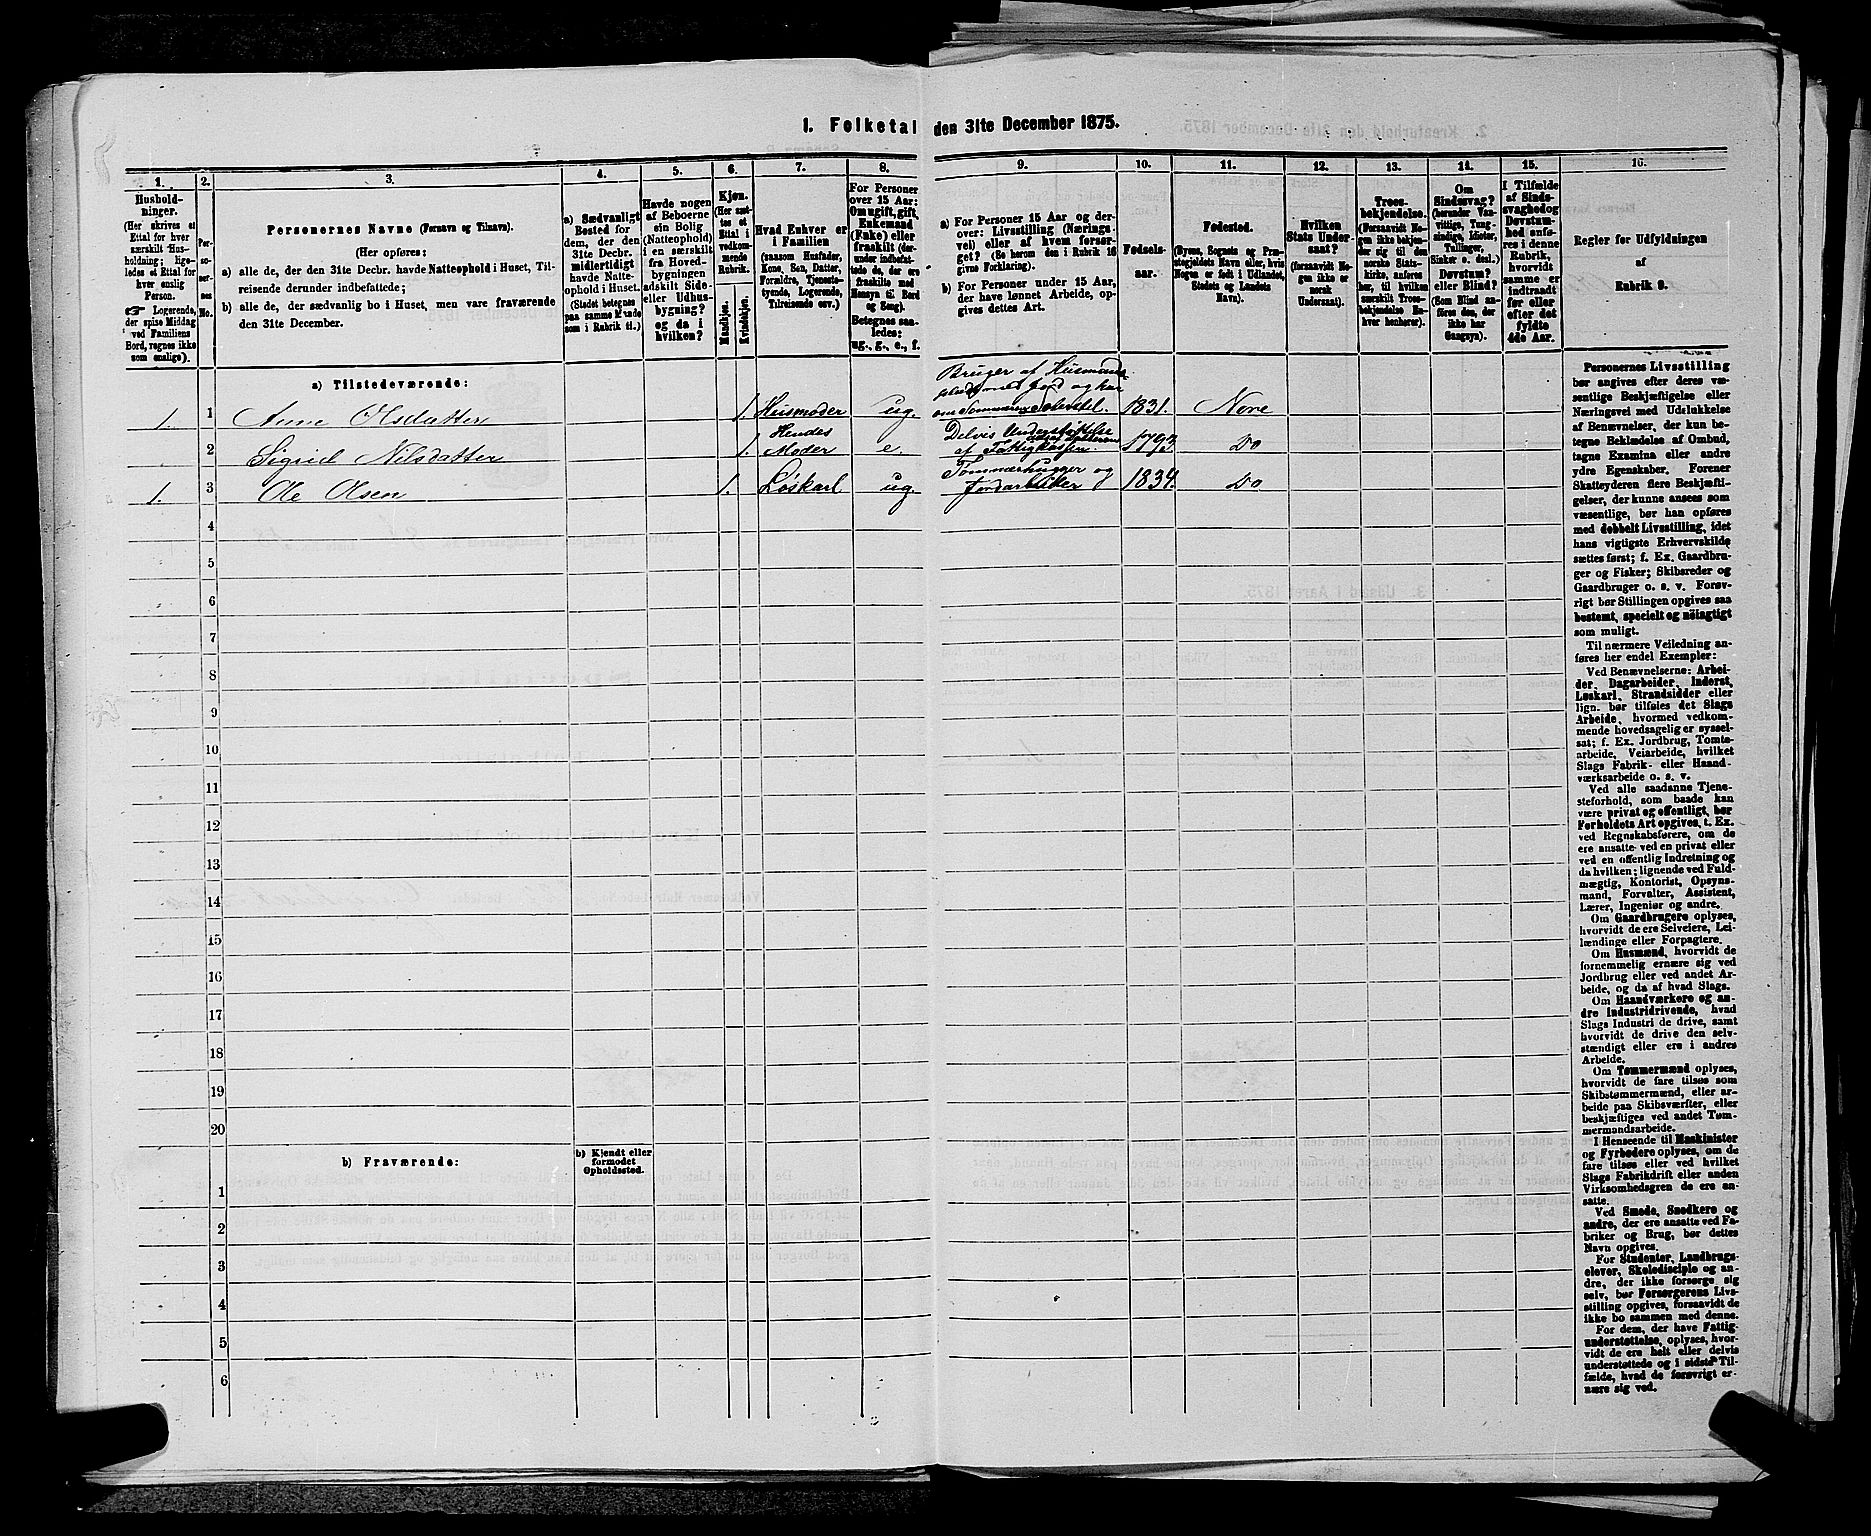 1. Folketal den 31te December 1875.
1.
Hushold-
ninger.
(Her skrives et
Ettal for hver
særskilt Hus-
holdning; lige-
ledes et Ettal for
hver enslig
Person.
☞ Logerende,
der spise Middag
ved Familiens
Bord, regnes ikke
som enslige).
2.
Per-
soner-
nes
No.
3.
Personernes Navne (Fornavn og Tilnavn).
(Her opføres:
a) alle de, der den 31te Decbr. havde Natteophold i Huset, Til-
reisende derunder indbefattede;
b) alle de, der sædvanlig bo i Huset, men vare fraværende
den 31te December.
4.
a) Sædvanligt
Bosted for
dem, der den
31te Decbr.
midlertidigt
havde Natte-
ophold i Huset.
(Stedet betegnes
paa samme Maade
som i Rubrik 11.)
5.
Havde nogen
af Beboerne
ein Bolig
(Natteophold)
i en særskilt
fra Hoved-
bygningen
adskilt Side-
eller Udhus-
bygning?
og da i
hvilken?
6.
Kjøn.
(Her sæt-
tes et
Ettal i
vedkom-
mende
Rubrik.
Mandkjøn.
Kvindekjøn.
7.
Hvad Enhver er
i Familien
(saasom Husfader,
Kone, Søn, Datter,
Forældre, Tjeneste-
tyende, Logerende,
Tilreisende osv.)
8.
For Personer
over 15 Aar:
Om ugift, gift,
Enkemand
(Enke) eller
fraskilt (der-
under indbefat-
tede de, der ere
fraskilte med
Hensyn til Bord
og Seng).
Betegnes saa-
ledes:
ug., g., e., f.
9.
a) For Personer 15 Aar og der-
over: Livsstilling (Nærings-
vei) eller af hvem forsør-
get? (Se herom den i Rubrik 16
givne Forklaring).
b) For Personer under 15 Aar,
der have lønnet Arbeide, op-
gives dettes Art.
10.
Fødsels-
aar.
11.
Fødested.
(Byens, Sognets og Præ-
stegjeldets Navn eller, hvis
Nogen er født i Udlandet,
Stedets og Landets
Navn).
12.
Hvilken
Stats Under-
saat?
(forsaavidt No-
gen ikke er
norsk
Undersaat).
13.
Troes-
bekjendelse.
(Forsaavidt No-
gen ikke bekjen-
der sig til den
norske Stats-
kirke, anføres
her, til hvilken
særskilt Troes-
bekjendelse En-
hver henhører).
14.
Om
Sindssvag?
(herunder Van-
vittige, Tung-
sindige, Idioter,
Tullinger,
Sinker o. desl.)
Døvstum?
eller Blind?
(Som Blind an-
føres den, der
ikke har
Gangsyn).
15.
I Tilfælde
af Sinds-
svaghed og
Døvstum-
hed anfø-
res i denne
Rubrik,
hvorvidt
samme er
indtraadt
før eller
efter det
fyldte
4de Aar.
16.
Regler for Udfyldningen
af
Rubrik 9.
a) Tilstedeværende:
1. 1 Anne Olsdatter 1. Husmoder ug. Bruger af Husmands-
plads med Jord og har
om Sommeren 1831. Nore
2 Sigrid Nilsdatter 1. Hendes
Moder e. Delvis Understøttelse
af Fattigkassen 1793. Do
1. 3 Ole Olsen 1. Løskarl ug. Tømmerhugger og
Jordarbeider 1834. Do
4
5
6
7
8
9
10
11
12
13
14
15
16
17
18
19
20
b) Fraværende:
b) Kjendt eller
formodet
Opholdssted.
1
2
3
4
5
6
Personernes Livsstilling
bør angives efter deres væ-
sentlige Beskjæftigelse eller
Næringsvei med Udelukkelse
af Benævnelser, der kun be-
tegne Beklædelse af Ombud,
tagne Examina eller andre
ydre Egenskaber. Forener
Skatteyderen flere Beskjæfti-
gelser, der kunne ansees som
væsentlige, bør han opføres
med dobbelt Livsstilling, idet
hans vigtigste Erhvervskilde
sættes først; f. Ex. Gaardbru-
ger og Fisker; Skibsreder og
Gaardbruger o. s. v. Forøv-
rigt bør Stillingen opgives saa
bestemt, specielt og nøiagtigt
som muligt.
Til nærmere Veiledning an-
føres her endel Exempler:
Ved Benævnelserne: Arbei-
der, Dagarbeider, Inderst,
Løskarl, Strandsidder eller
lign. bør tilføies det Slags
Arbeide, hvormed vedkom-
mende hovedsagelig er syssel-
sat; f. Ex. Jordbrug, Tomte-
arbeide, Veiarbeide, hvilket
Slags Fabrik- eller Haand-
værksarbeide o. s. v.
Ved alle saadanne Tjene-
steforhold, som baade kan
være privat og offentligt, bør
Forholdets Art opgives, t. Ex.
ved Regnskabsførere, om de
ere ansatte ved en privat eller
ved en offentlig Indretning og
da hvilken; lignende ved Fuld-
mægtig, Kontorist, Opsyns-
mand, Forvalter, Assistent,
Lærer, Ingeniør og andre.
Om Gaardbrugere oplyses,
hvorvidt de ere Selveiere, Lei-
lændinge eller Forpagtere.
Om Husmænd, hvorvidt de
fornemmelig ernære sig ved
Jordbrug eller ved andet Ar-
beide, og da af hvad Slags.
Om Haandværkere og an-
dre industridrivende, hvad
Slags Industri de drive, samt
hvorvidt de drive den selv-
stændigt eller ere i andres
Arbeide.
Om Tømmermænd oplyses,
hvorvidt de fare tilsøs som
Skibstømmermænd, eller ar-
beide paa Skibsværfter, eller
beskjæftiges ved andet Tøm-
mermandsarbeide.
I Henseende til Maskinister
og Fyrbødere oplyses, om de
fare tilsøs eller ved hvilket
Slags Fabrikdrift eller anden
Virksomhedsgren de ere an-
satte.
Ved Smede, Snedkere og
andre, der ere ansatte ved Fa-
briker og Brug, bør dettes
Navn opgives.
For Studenter, Landbrugs-
elever, Skoledisciple og an-
dre, der ikke forsørge sig
selv, bør Forsørgerens Livs-
stilling opgives, forsaavidt de
ikke bo sammen med denne.
For dem, der have Fattig-
understøttelse, oplyses, hvor-
vidt de ere helt eller delvis
understøttede og i sidste Til-
fælde, hvad de forøvrigt er-
nære sig ved.